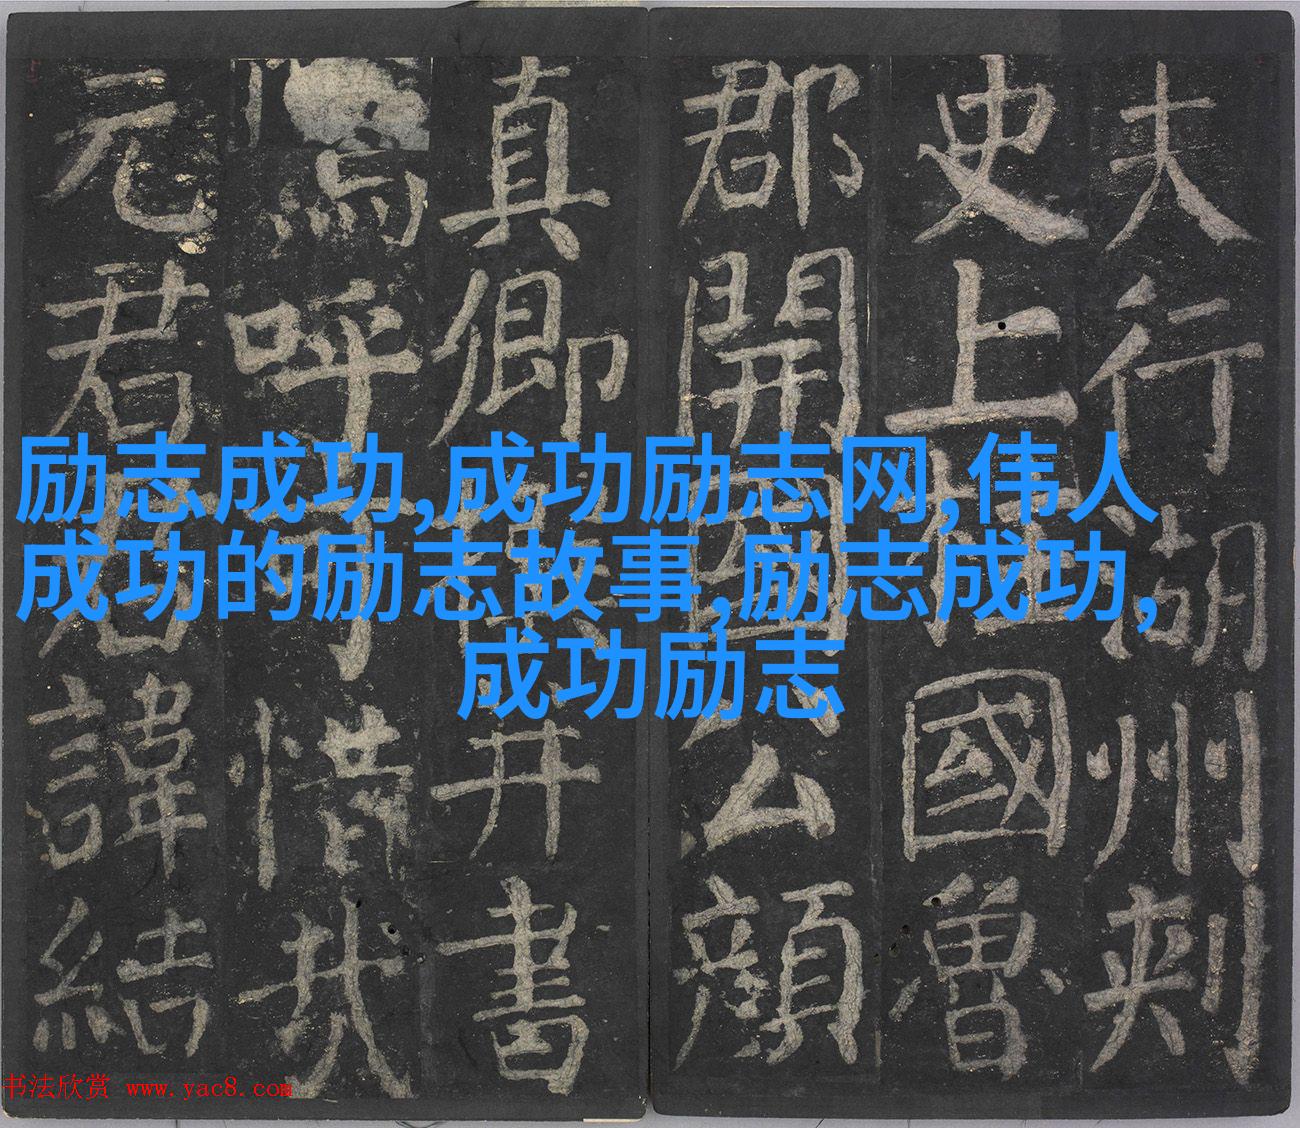 夫行湖州刺
史上柱國魯
郡開國公顔
真卿撰并書
嗚呼可惜哉
元君君諱結
励志成功,成功励志网,伟人
成功的励志故事,励志成功,
成功励志
书法欣赏 www.yac8.com